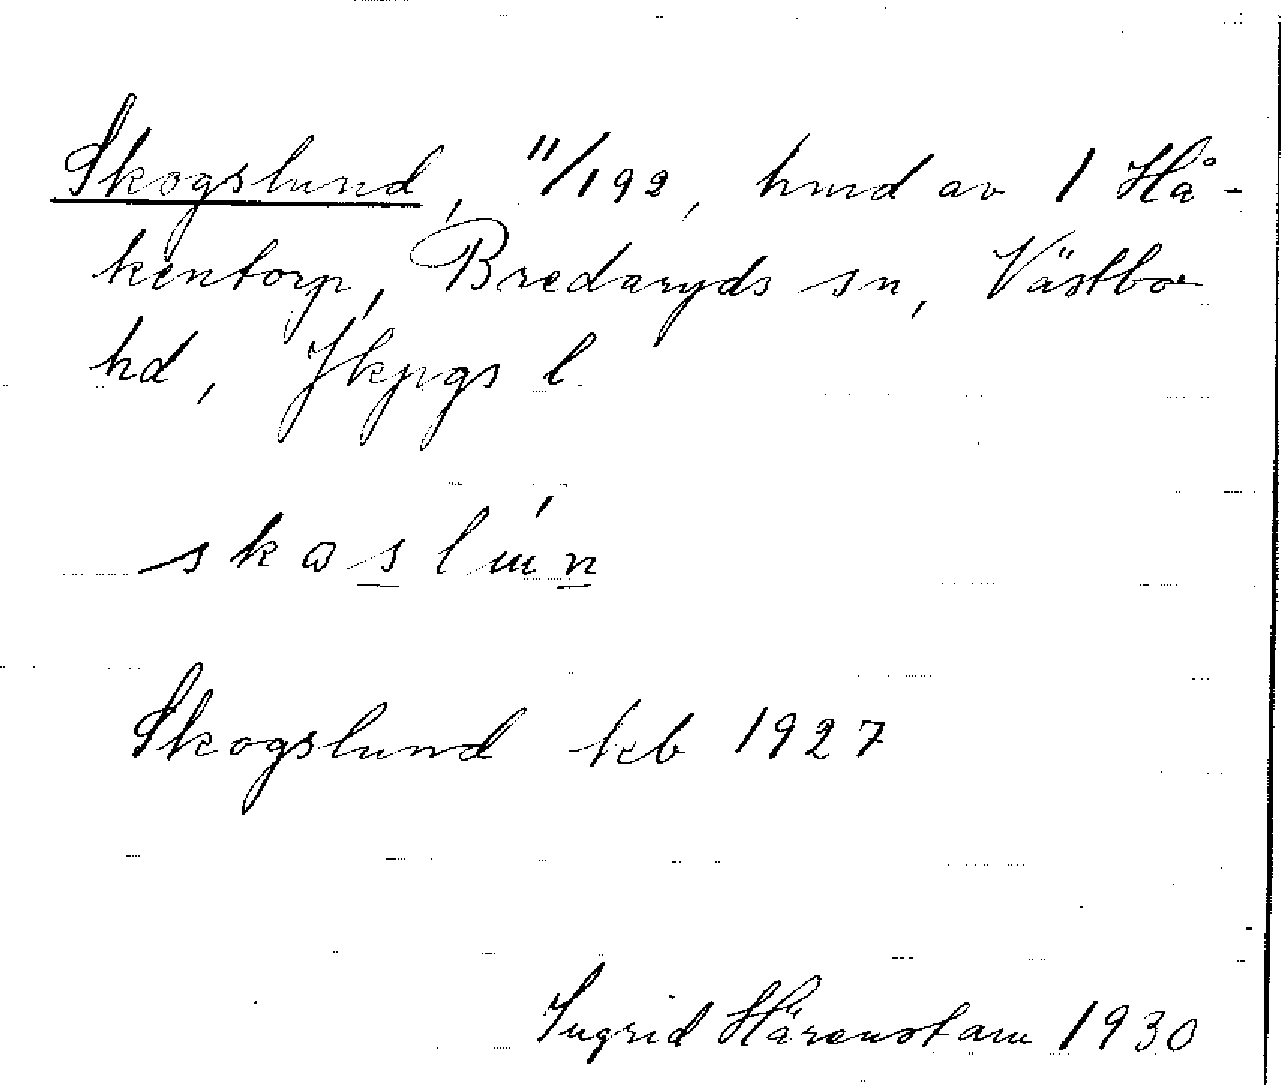 Skogslund, 11/192, hmd av 1 Hå-
kentorp, Bredaryds sn, Västbo
hd, Jkpgs l
skɷslún
Skogslund kb 1927
Ingrid Härenstam 1930